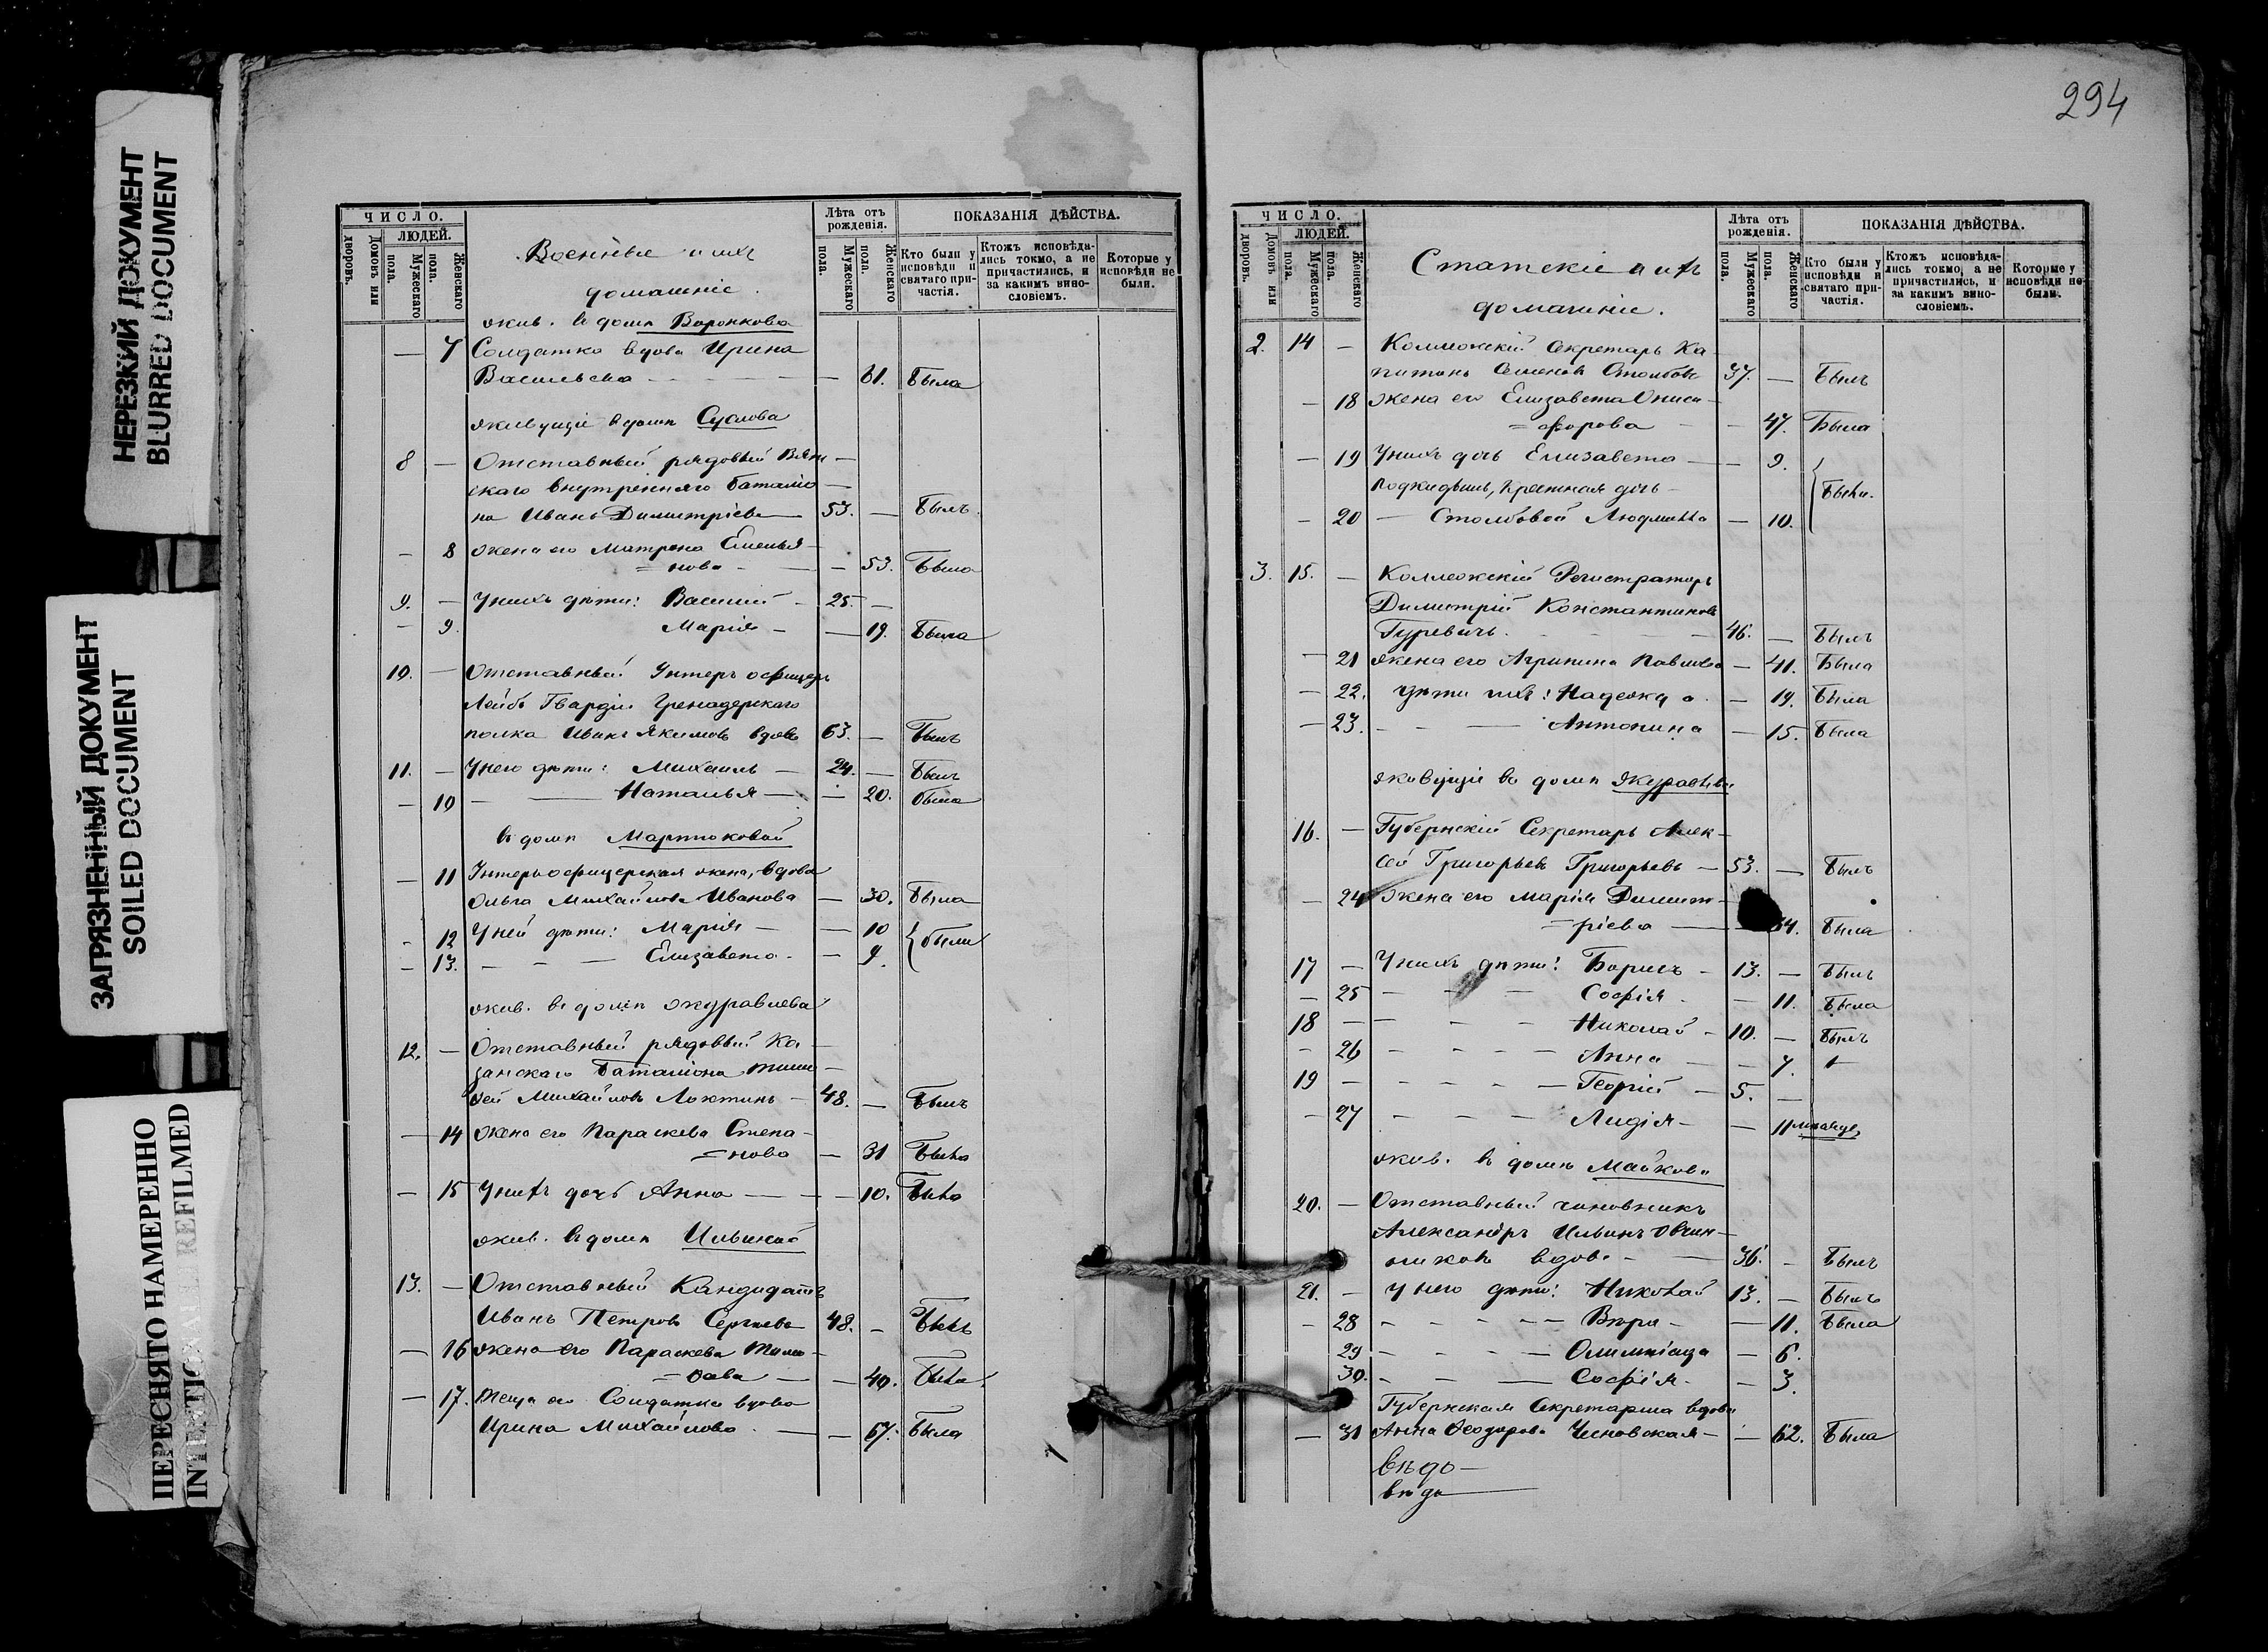 НЕРЕЗКИЙ ДОКУМЕНТ
BLURRED DOCUMENT
ЗАГРЯЗНЕННЫЙ ДОКУМЕНТ
SOILED DOCUMENT
ПЕРЕСНЯТО НАМЕРЕННО
INTENTIONALLY REFILMED
ЧИСЛО.
Домовъ или дворовъ.
ЛЮДЕЙ.
Мужескаго пола.
Женскаго пола.
Военные и ихъ
домашніе.
Лѣта отъ рожденія.
Мужескаго пола.
Женскаго пола.
ПОКАЗАНІЯ ДѢЙСТВА.
Кто были у исповѣди и святаго причастія.
Ктожъ исповѣдались токмо, а не причастились, и за какимъ винословіемъ.
Которые у исповѣди не были.
жив. въ домѣ Воронкова
— 7 Солдатка вдова Ирина
Васильева — 61. Была
живущіе въ домѣ Суслова
8 — Отставный рядовый Вят-
скаго внутренняго Баталіо-
на Иванъ Димитріевъ 53. — Былъ.
— 8 жена его Матрона Емелья-
=нова — 53. Была
9. — У нихъ дѣти: Василій — 25. —
— 9. Марія — — 19. Была
10. — Отставный Унтеръ офицеръ
Лейбъ Гвардіи Гренадерскаго
полка Иванъ Якимовъ вдовъ 63. — Былъ
11. — У него дѣти: Михаилъ — 24. — Былъ
— 10 — — Наталья — — 20. была
въ домѣ Мартюковой
— 11 Унтеръ офицерская жена, вдова
Ольга Михайлова Иванова — 30. Была
— 12 У ней дѣти: Марія — — 10 были
— 13. — — — Елизавета. — 9.
жив. въ домѣ Журавлева
12. — Отставный рядовый Ка-
занскаго Баталіона Тимо-
фей Михайловъ Локтинъ — 48. — Былъ
— 14 жена его Параскева Степа-
=нова — 31 Была
— 15 У нихъ дочь Анна — — 10. Была
жив. въ домѣ Ильиной
13. — Отставный Кандидатъ
Иванъ Петровъ Сергѣевъ 48. — Былъ
— 16 жена его Параскева Тимо-
=ѳева — — 40. Была.
— 17. Теща его Солдатка вдова
Ирина Михайлова. — — 67. Была
294
ЧИСЛО.
Домовъ или дворовъ.
ЛЮДЕЙ.
Мужескаго пола.
Женскаго пола.
Статскіе и ихъ
домашніе.
Лѣта отъ рожденія.
Мужескаго пола.
Женскаго пола.
ПОКАЗАНІЯ ДѢЙСТВА.
Кто были у исповѣди и святаго причастія.
Ктожъ исповѣдались токмо, а не причастились, и за какимъ винословіемъ.
Которые у исповѣди не были.
2. 14 — Коллежскій Секретарь Ка-
питонъ Семеновъ Столбовъ 37. — Былъ
— 18 жена его Елизавета Ониси-
=форова — — 47. Была
— 19 У нихъ дочь Елизавета — — 9.
Подкидышъ, крестная дочь — Были.
— 20 — Столбовой Людмила — 10.
3. 15. — Коллежскій Регистраторъ
Димитрій Константиновъ
Гуревичъ. — 46. — Былъ
— 21 жена его Агрипина Павлова — 41. Была
— 22. Дѣти ихъ: Надежда. — 19. Была
— 23. — — Антонина — 15. Была
живущіе въ домѣ Журавлева
16. — Губернскій Секретарь Алек-
сѣй Григорьевъ Григорьевъ — 53. — Былъ
— 24 Жена его Марія Димит-
=ріева — 4. Была
17 — У нихъ дѣти: Борисъ — 13. — Былъ
— 25 — — — Софія. — 11. Была
18 — — — — Николай — 10. — Былъ
— 26 — — — — Анна — — 7.
19 — — — — — Георгій — 5. —
— 27 — — — Лидія — — 11 мѣсяцев
жив. въ домѣ Майкова
20. — Отставный чиновникъ
Александръ Ильинъ Овчин-
никовъ вдовъ — — 36. — Былъ
21. — У него дѣти: Николай 13. — Былъ
— 28 — — — — Вѣра — — 11. Была
29 — — — — Олимпіада — 6.
30. — — — Софія. — 3.
Губернская Секретарша вдова
— 31 Анна Ѳеодорова — — 62. Была